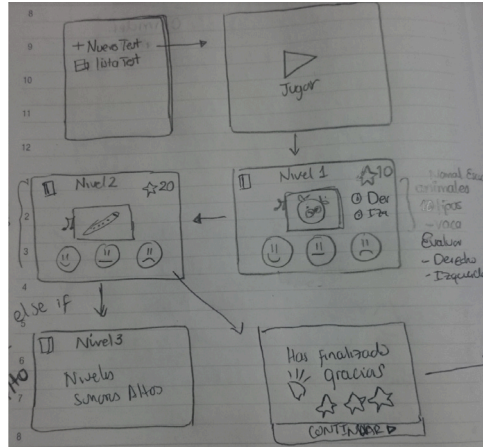 8
9
10
11
12
+ Nuevo Test
lista Test
Jugar
1
2
3
4
5
6
7
8
Nivel 2
20
Nivel 1
10
Der
Izq
Normal
animales
- vaca
Evaluar
- Derecho
- Izquierdo
else if
Nivel 3
Niveles
Altos
Has finalizado
gracias
CONTINUAR